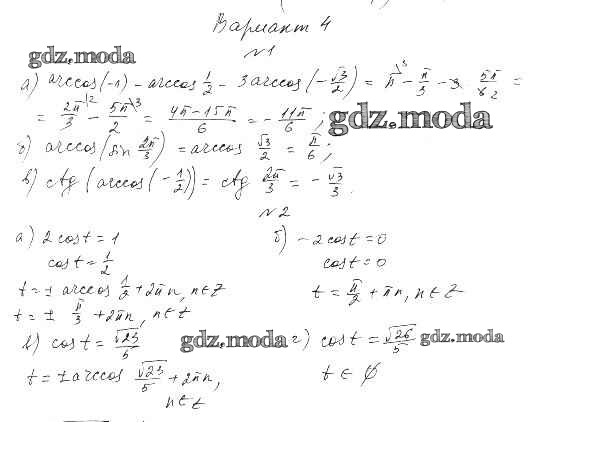 Вариант 4
№1
gdz.moda
а) arccos(-1) - arccos 1/2 - 3 arccos(-√3/2) = π\3 - π/3 - 3· 5π/6 2 =
= 2π\2/3 - 5π\3/2 = 4π-15π/6 = -11π/6 ;
gdz.moda
б) arccos(sin 2π/3) = arccos √3/2 = π/6 ;
в) ctg(arccos(-1/2)) = ctg 2π/3 = -√3/3 .
№2
а) 2cost = 1
cost = 1/2
t = ± arccos 1/2 + 2πn, n∈Z
t = ± π/3 + 2πn, n∈Z
б) -2cost = 0
cost = 0
t = π/2 + πn, n∈Z
в) cost = √23/5
gdz.moda
t = ± arccos √23/5 + 2πn,
n∈Z
г) cost = √26/5
gdz.moda
t ∈ ∅